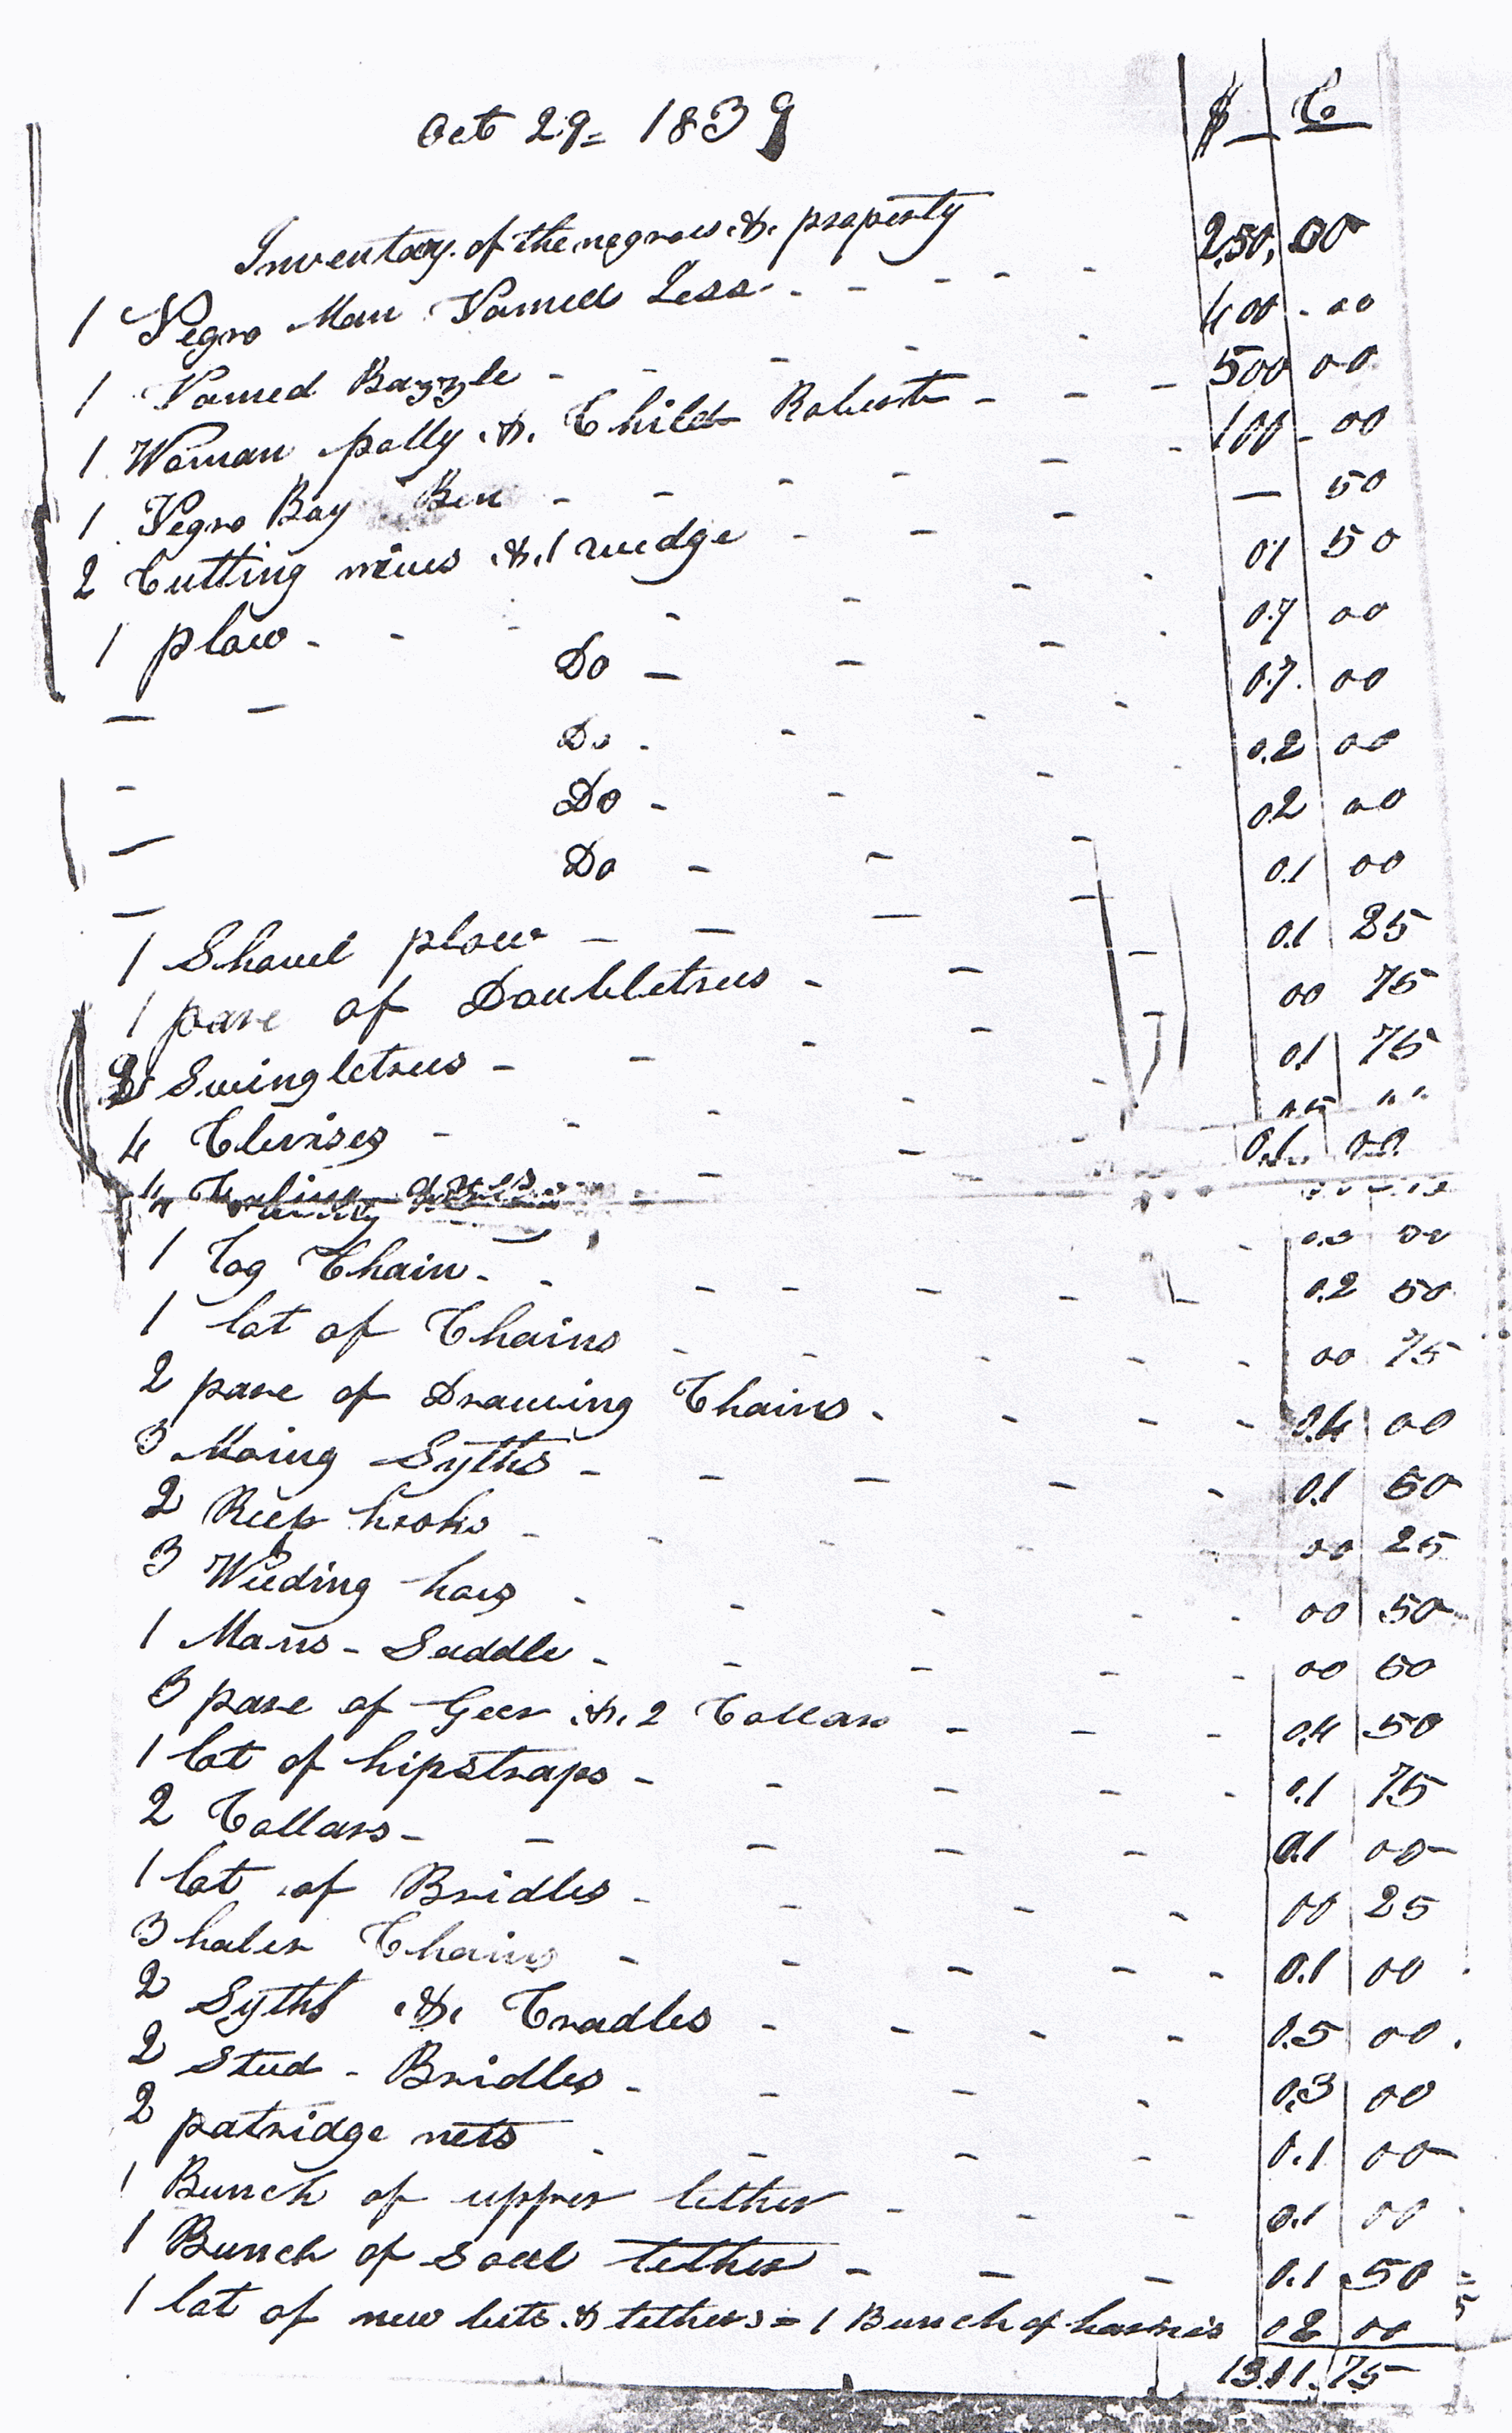 Oct 29= 1839
$ C
Inventory of the negroes & property
1 Negro Man Named Less 250.00
1 Named Bazzle 400-00
1 Woman polly & Child Robert 500 00
1 Negro Boy Ben 100-00
2 Cutting & 1 — 50
1 plow 01 50
Do 07 00
Do 07. 00
Do 0.2 00
Do 02 00
1 Shovel plow 0.1 00
1 pare of Doubletrees 0.1 25
Swingletrees 00 75
4 Clevises 0.1 75
4
0.1 00
1 Log Chain
1 lot of Chains 0.2 50
2 pare of Drawing Chains 00 75
3 Moing Syths 0.4 00
2 Reep hooks 0.1 50
3 Weeding hoes 00 25
1 Mans - Saddle 00 50
3 pare of Geer & 2 Collars 00 50
1 lot of hipstraps 04 50
2 Collars 0.1 75
1 lot of Bridles 0.1 00
3 halter Chains 00 25
2 Syths & Cradles 0.1 00
2 Stud - Bridles 0.5 00
2 patridge nets 0.3 00
1 Bunch of upper lether 0.1 00
1 Bunch of soul lether 0.1 00
0.1 50
1 lot of new & = 1 Bunch of 02 00
1311.75